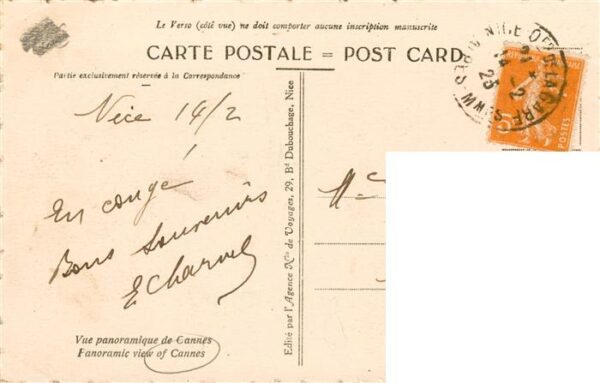 Le Verso (côté vue) ne doit comporter aucune inscription manuscrite
CARTE POSTALE = POST CARD
Partie exclusivement réservée à la Correspondance
Nice 14/2
En congé
Bons souvenirs
Vue panoramique de Cannes
Panoramic view of Cannes
Edité par l'Agence Nle de Voyages, 29, Bd Dubouchage, Nice
NICE
DE LA GARE
2
25
5c
POSTES